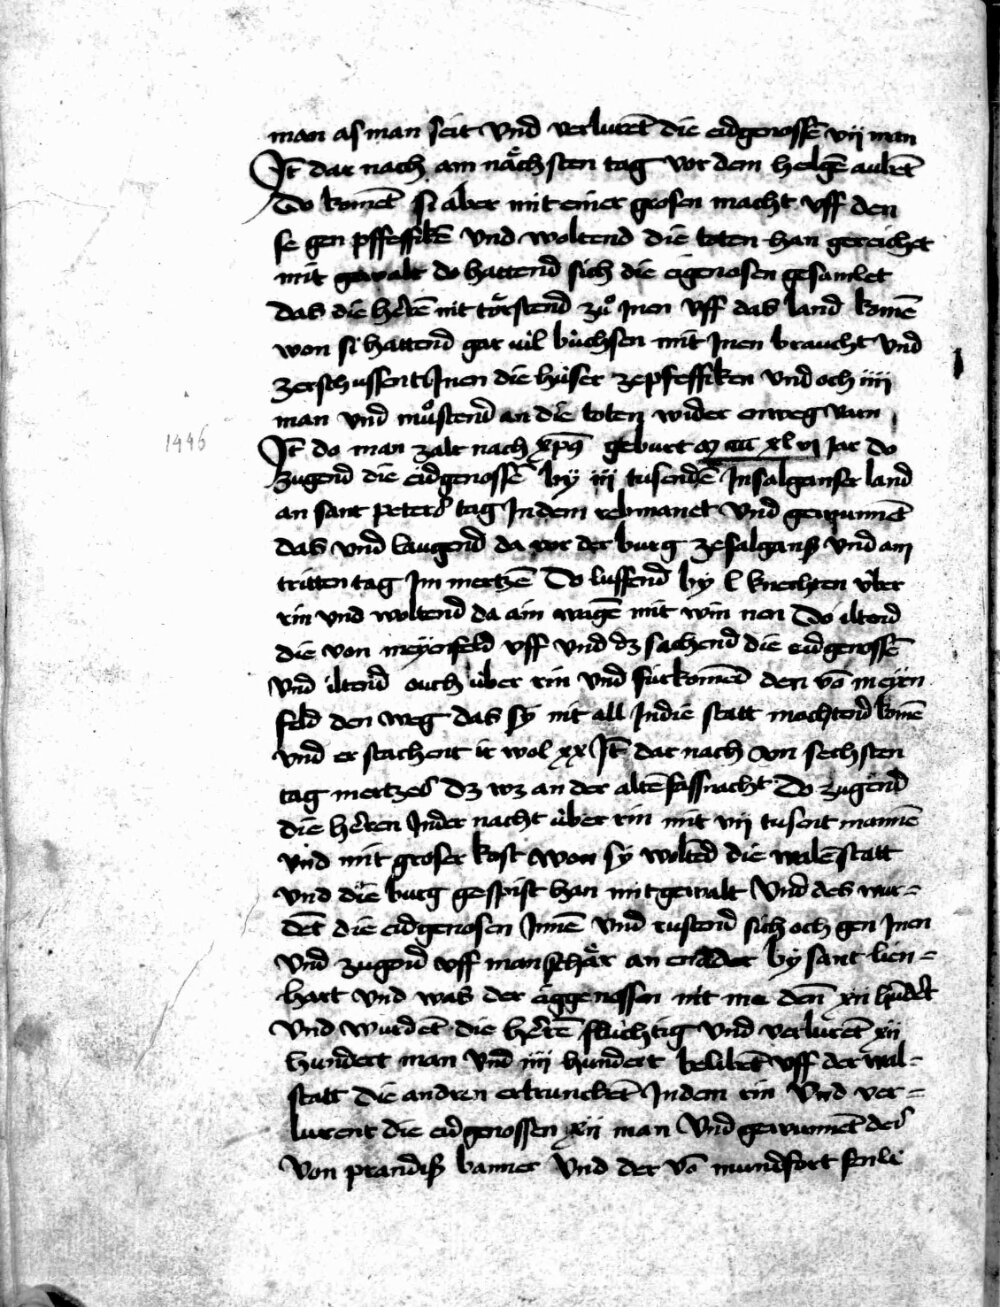 man as man seit vnd verlurēt die eidgenossē vij man
Jt̄ dar nach am nächsten tag vor dem helgē aubēt
do komēt si aber mit einer grosen macht vff den
se gen pfeffikē vnd woltend die toten han gereichet
mit gewalt do hattend sich die eigenosen gesamlet
das die herē nit törstend zuͦ Jnen vff das land komē
won si hattend gar vil büchsen mit Jnen braucht vnd
zerschussent Jnen die hüser ze pfeffiken vnd och iiij
man vnd muͦstend an die toten wider enweg varn
1446
Jt̄ do man zalt nach xp̄s geburt M cccc xlvi Jar do
zugend die eidgenossē by iij tusendē Jn salganser land
an sant peters tag Jn dem rebmanet vnd gewunnēt
das vnd laugend da vor der burg ze salgans vnd am
tritten tag Jm mertzē do luffend by l knechten v̈ber
rin vnd woltend da ain wagē mit win nen do iltend
die von meyenfeld vff vnd dz sachend die eidgenossē
vnd iltend ouch über rin vnd fürkomēd den vō meyen
feld den weg das sy nit all Jn die statt mochtend komē
vnd er stachent ir wol xx Jt̄ dar nach am sechsten
tag mertzes dz wz an der altē fassnacht do zugend
die herren Jn der nacht über rin mit vij tusent mannē
vnd mit groser kost won sy woltēd die walēstatt
vnd die burg gespist han mit gewalt vnd des wur-
dēt die eidgenosen Jnnē vnd rustend sich och gen Jnen
vnd zugend vff man schär an enander by sant lien-
hart vnd was der eiggenossen nit me denn xii hundert
vnd wurdēt die herrē fluchtig vnd verlurēt xij
hundert man vnd iiij hundert belibēt vff der wal-
statt die andren ertrunckēt Jn dem rin vnd ver-
lurent die eidgenossen xij man vnd gewunnēt des
von prandis banner vnd der vō muntfort fenle